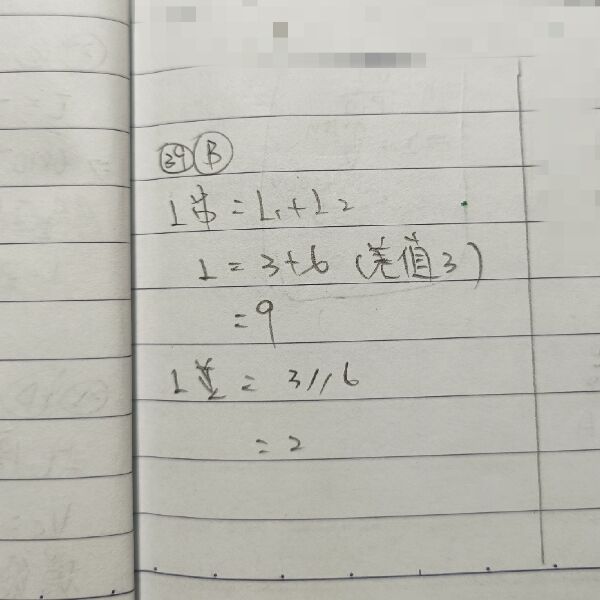 39 B
L串 = L1 + L2
L = 3+6 (差值3)
= 9
L並 = 3//6
= 2